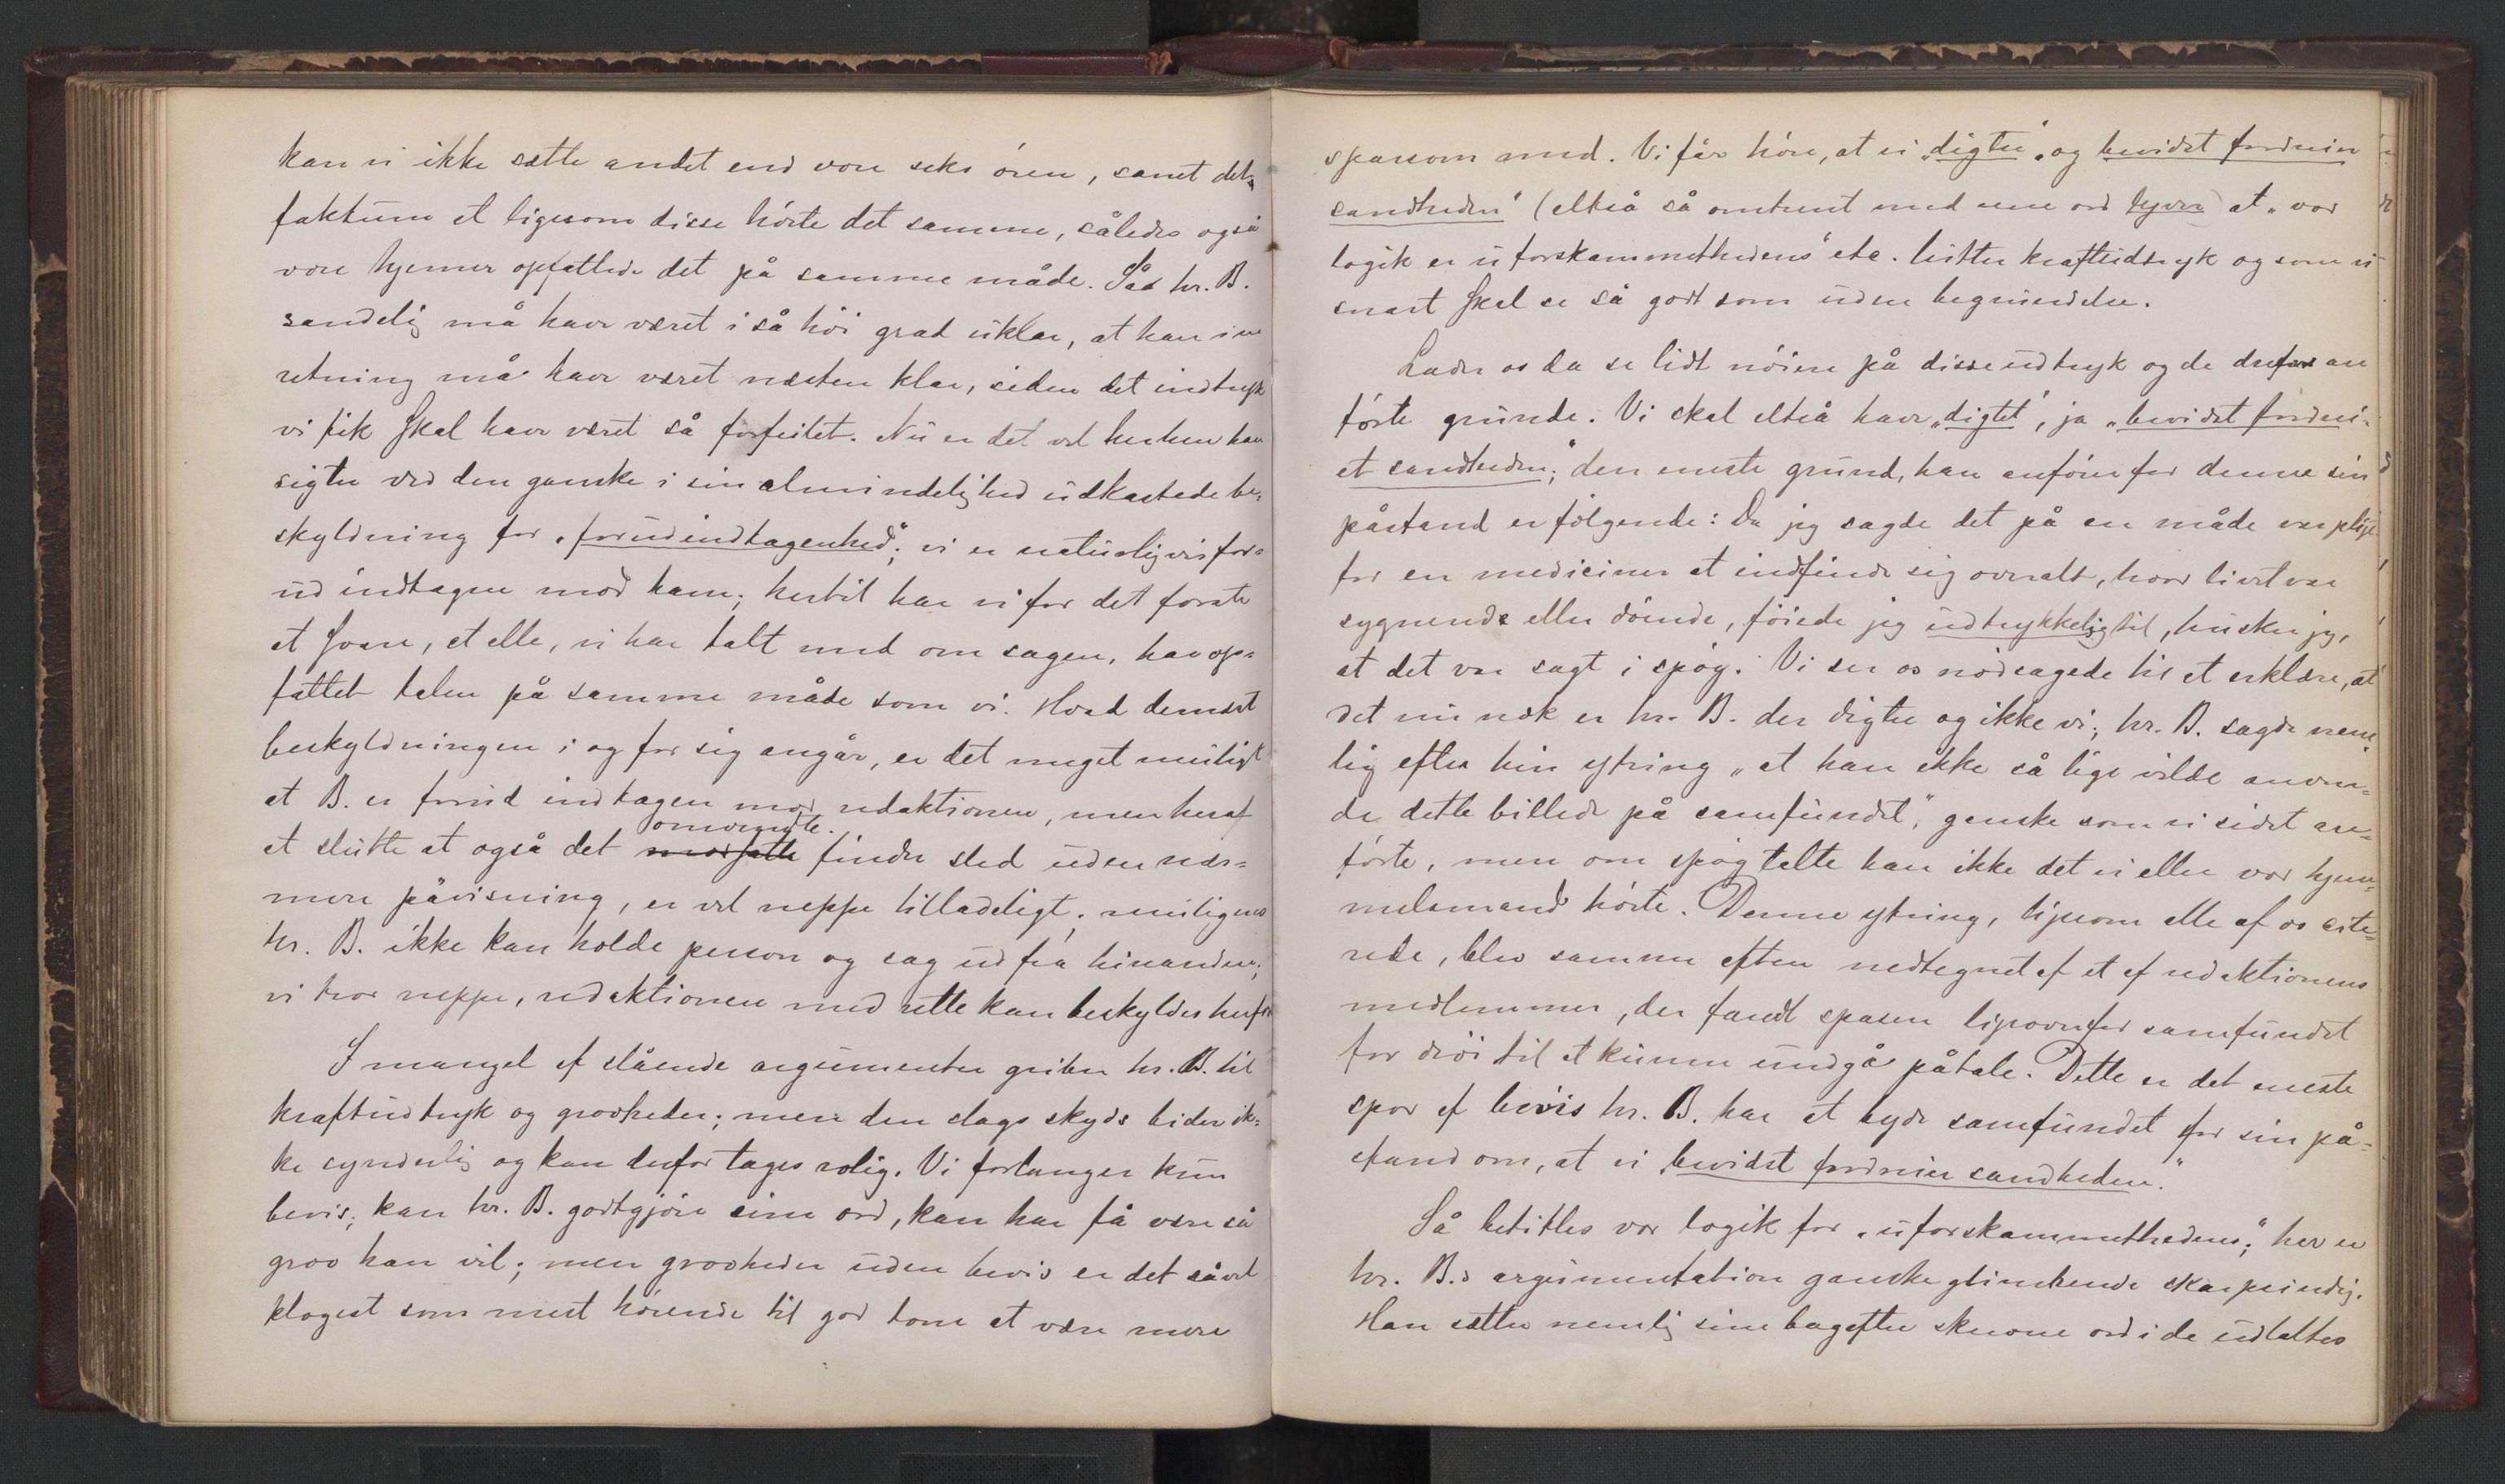 kan vi ikke sætte andet end vore seks ören, samt det
faktum at ligesom disse hörte det samme, således også
vore hjerner opfattede det på samme måde. Så hr. B.
sandelig må have været i så höi grad uklar, at han i en
retning må have været næsten klar, siden det indtryk
vi fik skal have været så forfeilet. Nu er det vel herhen han
sigter ved den ganske i sin almindelighed udkastede be-
skyldning for „forudindtagenhed"; vi er naturligvis for-
ud indtagne mod ham; hertil har vi for det förste
at svare, at alle, vi har talt med om sagen, har op-
fattet talen på samme måde som vi. Hvad dernæst
beskyldningen i og for sig angår, er det meget muligt
at B. er forud indtagen mod redaktionen, men heraf
at slutte at også det omvendte finder sted uden nær-
mere påvisning, er vel neppe tilladeligt. muligens
hr. B. ikke kan holde person og sag ud fra hinanden;
vi tror neppe, redaktionen med rette kan beskyldes herfor
I mangel af slående argumenter griber hr. B. til
kraftudtryk og grovheder; men den slags skyds bider ik-
ke synderlig og kan derfor tages rolig. Vi forlanger kun
bevis; kan hr. B. godtgjöre sine ord, kan han få være så
grov han vil; men grovheder uden bevis er det såvel
klogest som mest hörende til god tone at være mere
sparsom med. Vi får höre, at vi „digter", og bevidst fordreier
sandheden" (altså så omtrent med rene ord lyver) at „vor
logik er uforskammethedens" etc. lutter kraftudtryk og som vi
snart skal se så godt som uden begrundelse.
Lader os da se lidt nöiere på disse udtryk og de derfor an
förte grunde. Vi skal altså have „digtet", ja „bevidst fordrei-
et sandheden;" den eneste grund, han anförer for denne sin
påstand er fölgende: Da jeg sagde det på en måde var pligt
for en mediciner at indfinde sig overalt, hvor livet var
sygnende eller döende, föiede jeg udtrykkelig til, husker jeg,
at det var sagt i spög. Vi ser os nödsagede til at erklære, at
det nu nok er hr. B. der digter og ikke vi; hr. B. sagde nem-
lig efter hin ytring „at han ikke så lige vilde anven-
de dette billede på samfundet," ganske som vi sidst an-
förte, men om spög talte han ikke det vi eller vor hjem-
melsmand hörte. Denne ytring, ligesom alle af os cite-
rede, blev samme aften nedtegnet af et af redaktionens
medlemmer, der fandt spasen ligeoverfor samfundet
for dröi til at kunne undgå påtale. Dette er det eneste
spor af bevis hr. B. har at byde samfundet for sin på-
stand om, at vi „bevidst fordreier sandheden."
Så betitles vor logik for „uforskammethedens;" her er
hr. B.s argumentation ganske glimrende skarpsindig.
Han sætter nemlig sine bagefter skrevne ord i de udtaltes